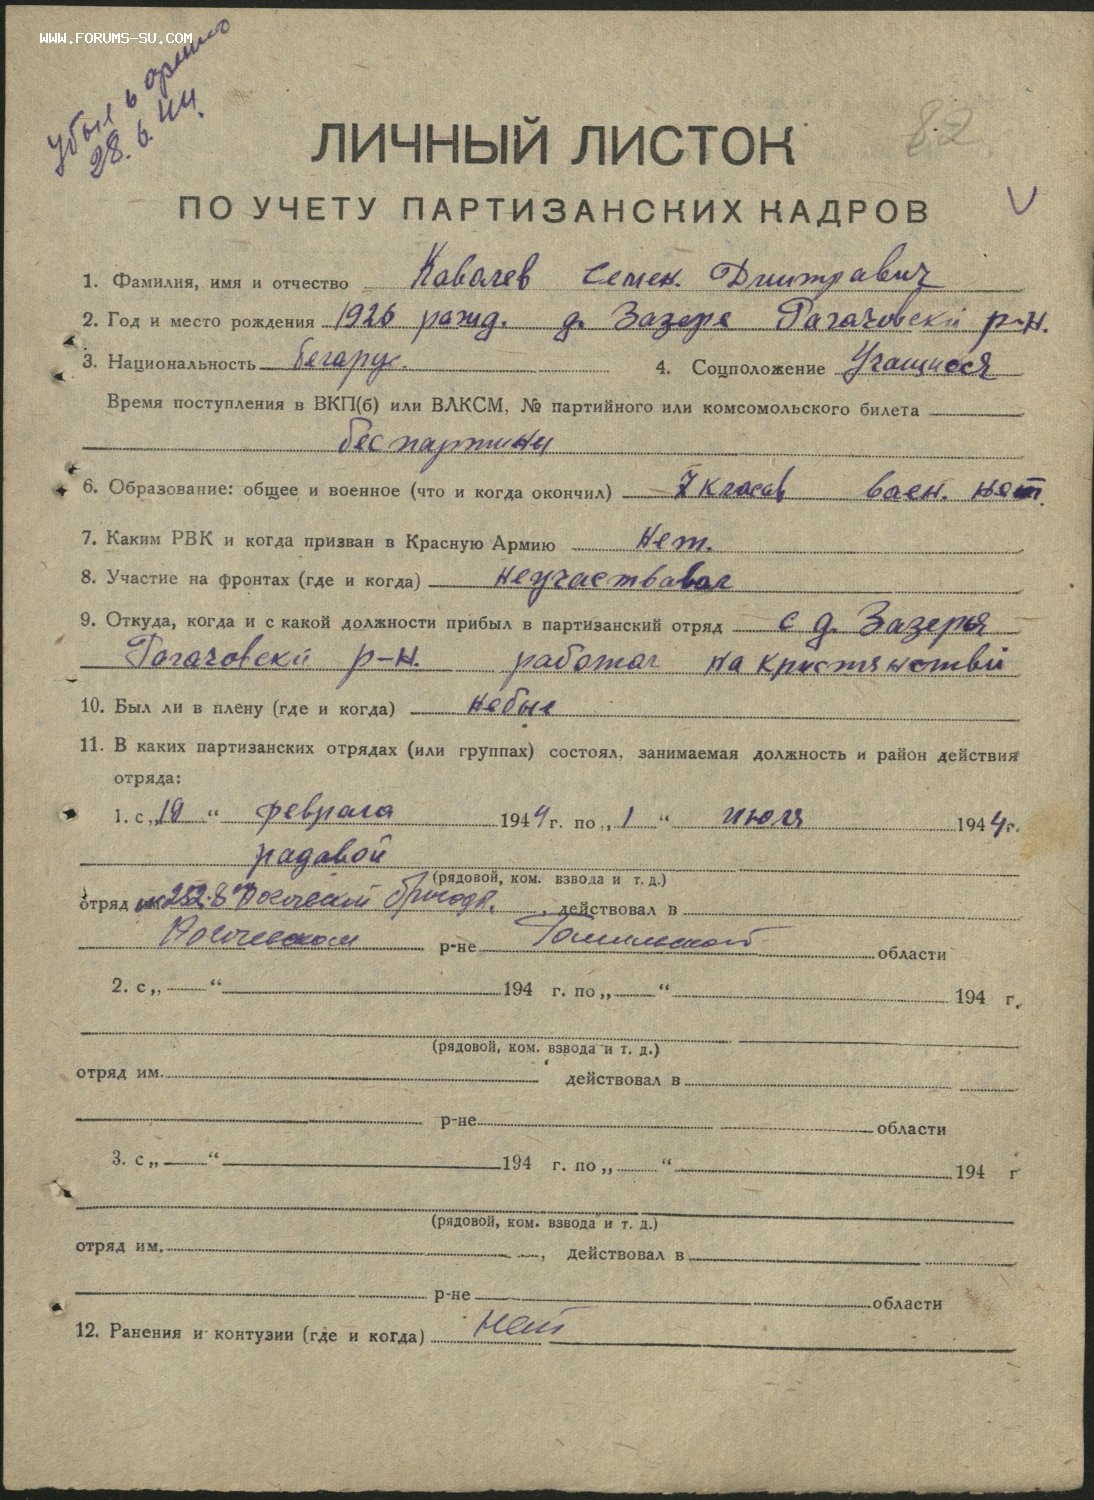 WWW.FORUMS-SU.COM
Убыл в армию
28.6.44.
82
ЛИЧНЫЙ ЛИСТОК
ПО УЧЕТУ ПАРТИЗАНСКИХ КАДРОВ
1. Фамилия, имя и отчество Ковалев Семен. Дмитравич
2. Год и место рождения 1926 ражд. д. Зазерье Рагачовски р-н.
3. Национальность беларус. 4. Соцположение Учащиося
Время поступления в ВКП(б) или ВЛКСМ, № партийного или комсомольского билета
беспартины
6. Образование: общее и военное (что и когда окончил) 7 класав ваен. нет.
7. Каким РВК и когда призван в Красную Армию Нет.
8. Участие на фронтах (где и когда) неучаствавал
9. Откуда, когда и с какой должности прибыл в партизанский отряд с д. Зазерья
Рагачовски р-н. работал на кристянстви
10. Был ли в плену (где и когда) небыл
11. В каких партизанских отрядах (или группах) состоял, занимаемая должность и район действия
отряда:
1. с „19“ февраля 1944 г. по „1“ июля 1944 г.
радавой
(рядовой, ком. взвода и т. д.)
отряд 252. 8 Рогачевской бригады, действовал в
Рогачевском р-не Гомельской области
2. с „ “ 194 г. по „ “ 194 г.
(рядовой, ком. взвода и т. д.)
отряд им. действовал в
р-не области
3. с „ “ 194 г. по „ “ 194 г
(рядовой, ком. взвода и т. д.)
отряд им. , действовал в
р-не области
12. Ранения и контузии (где и когда) нет